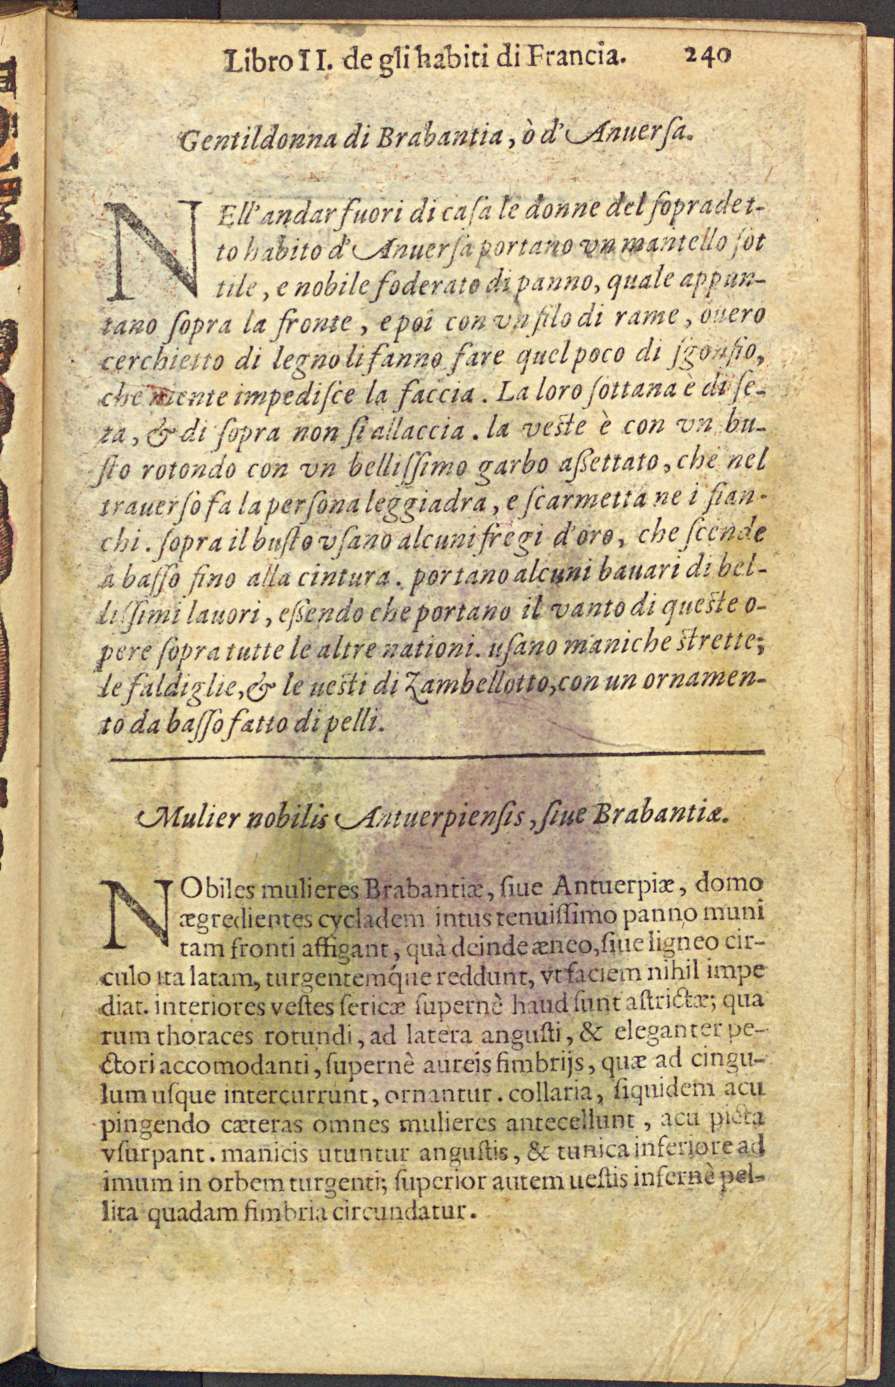 Libro II. de gli habiti di Francia. 240
Gentildonna di Brabantia, ò d'Anuerſa.
NEll'andar fuori di caſa le donne del ſopradet-
to habito d'Anuerſa portano vn mantello ſot
tile, e nobile foderato di panno, quale appun-
tano ſopra la fronte, e poi con vn filo di rame, ouero
cerchietto di legno li fanno fare quel poco di ſgonfio,
che niente impediſce la faccia. La loro ſottana è di ſe-
ta, & di ſopra non ſi allaccia. la veſte è con vn bu-
ſto rotondo con vn belliſſimo garbo aſſettato, che nel
trauerſo fa la perſona leggiadra, e ſcarmetta ne i fian-
chi. ſopra il buſto vſano alcuni fregi d'oro, che ſcende
a baſſo fino alla cintura. portano alcuni bauari di bel-
liſſimi lauori, eſſendo che portano il vanto di queſte o-
pere ſopra tutte le altre nationi. uſano maniche ſtrette;
le faldiglie, & le ueſti di Zambellotto, con un ornamen-
to da baſſo fatto di pelli.
Mulier nobilis Antuerpienſis, ſiue Brabantiæ.
NObiles mulieres Brabantiæ, ſiue Antuerpiæ, domo
ægredientes cycladem intus tenuiſſimo panno muni
tam fronti affigant, quà deinde æneo, ſiue ligneo cir-
culo ita latam, turgentemq́ue reddunt, vt faciem nihil impe
diat. interiores veſtes ſericæ ſupernè haud ſunt aſtrictæ; qua
rum thoraces rotundi, ad latera anguſti, & eleganter pe-
ctori accomodanti, ſupernè aureis fimbrijs, quæ ad cingu-
lum uſque intercurrunt, ornantur. collaria, ſiquidem acu
pingendo cæteras omnes mulieres antecellunt, acu picta
vſurpant. manicis utuntur anguſtis, & tunica inferiore ad
imum in orbem turgenti; ſuperior autem ueſtis infernè pel-
lita quadam fimbria circundatur.